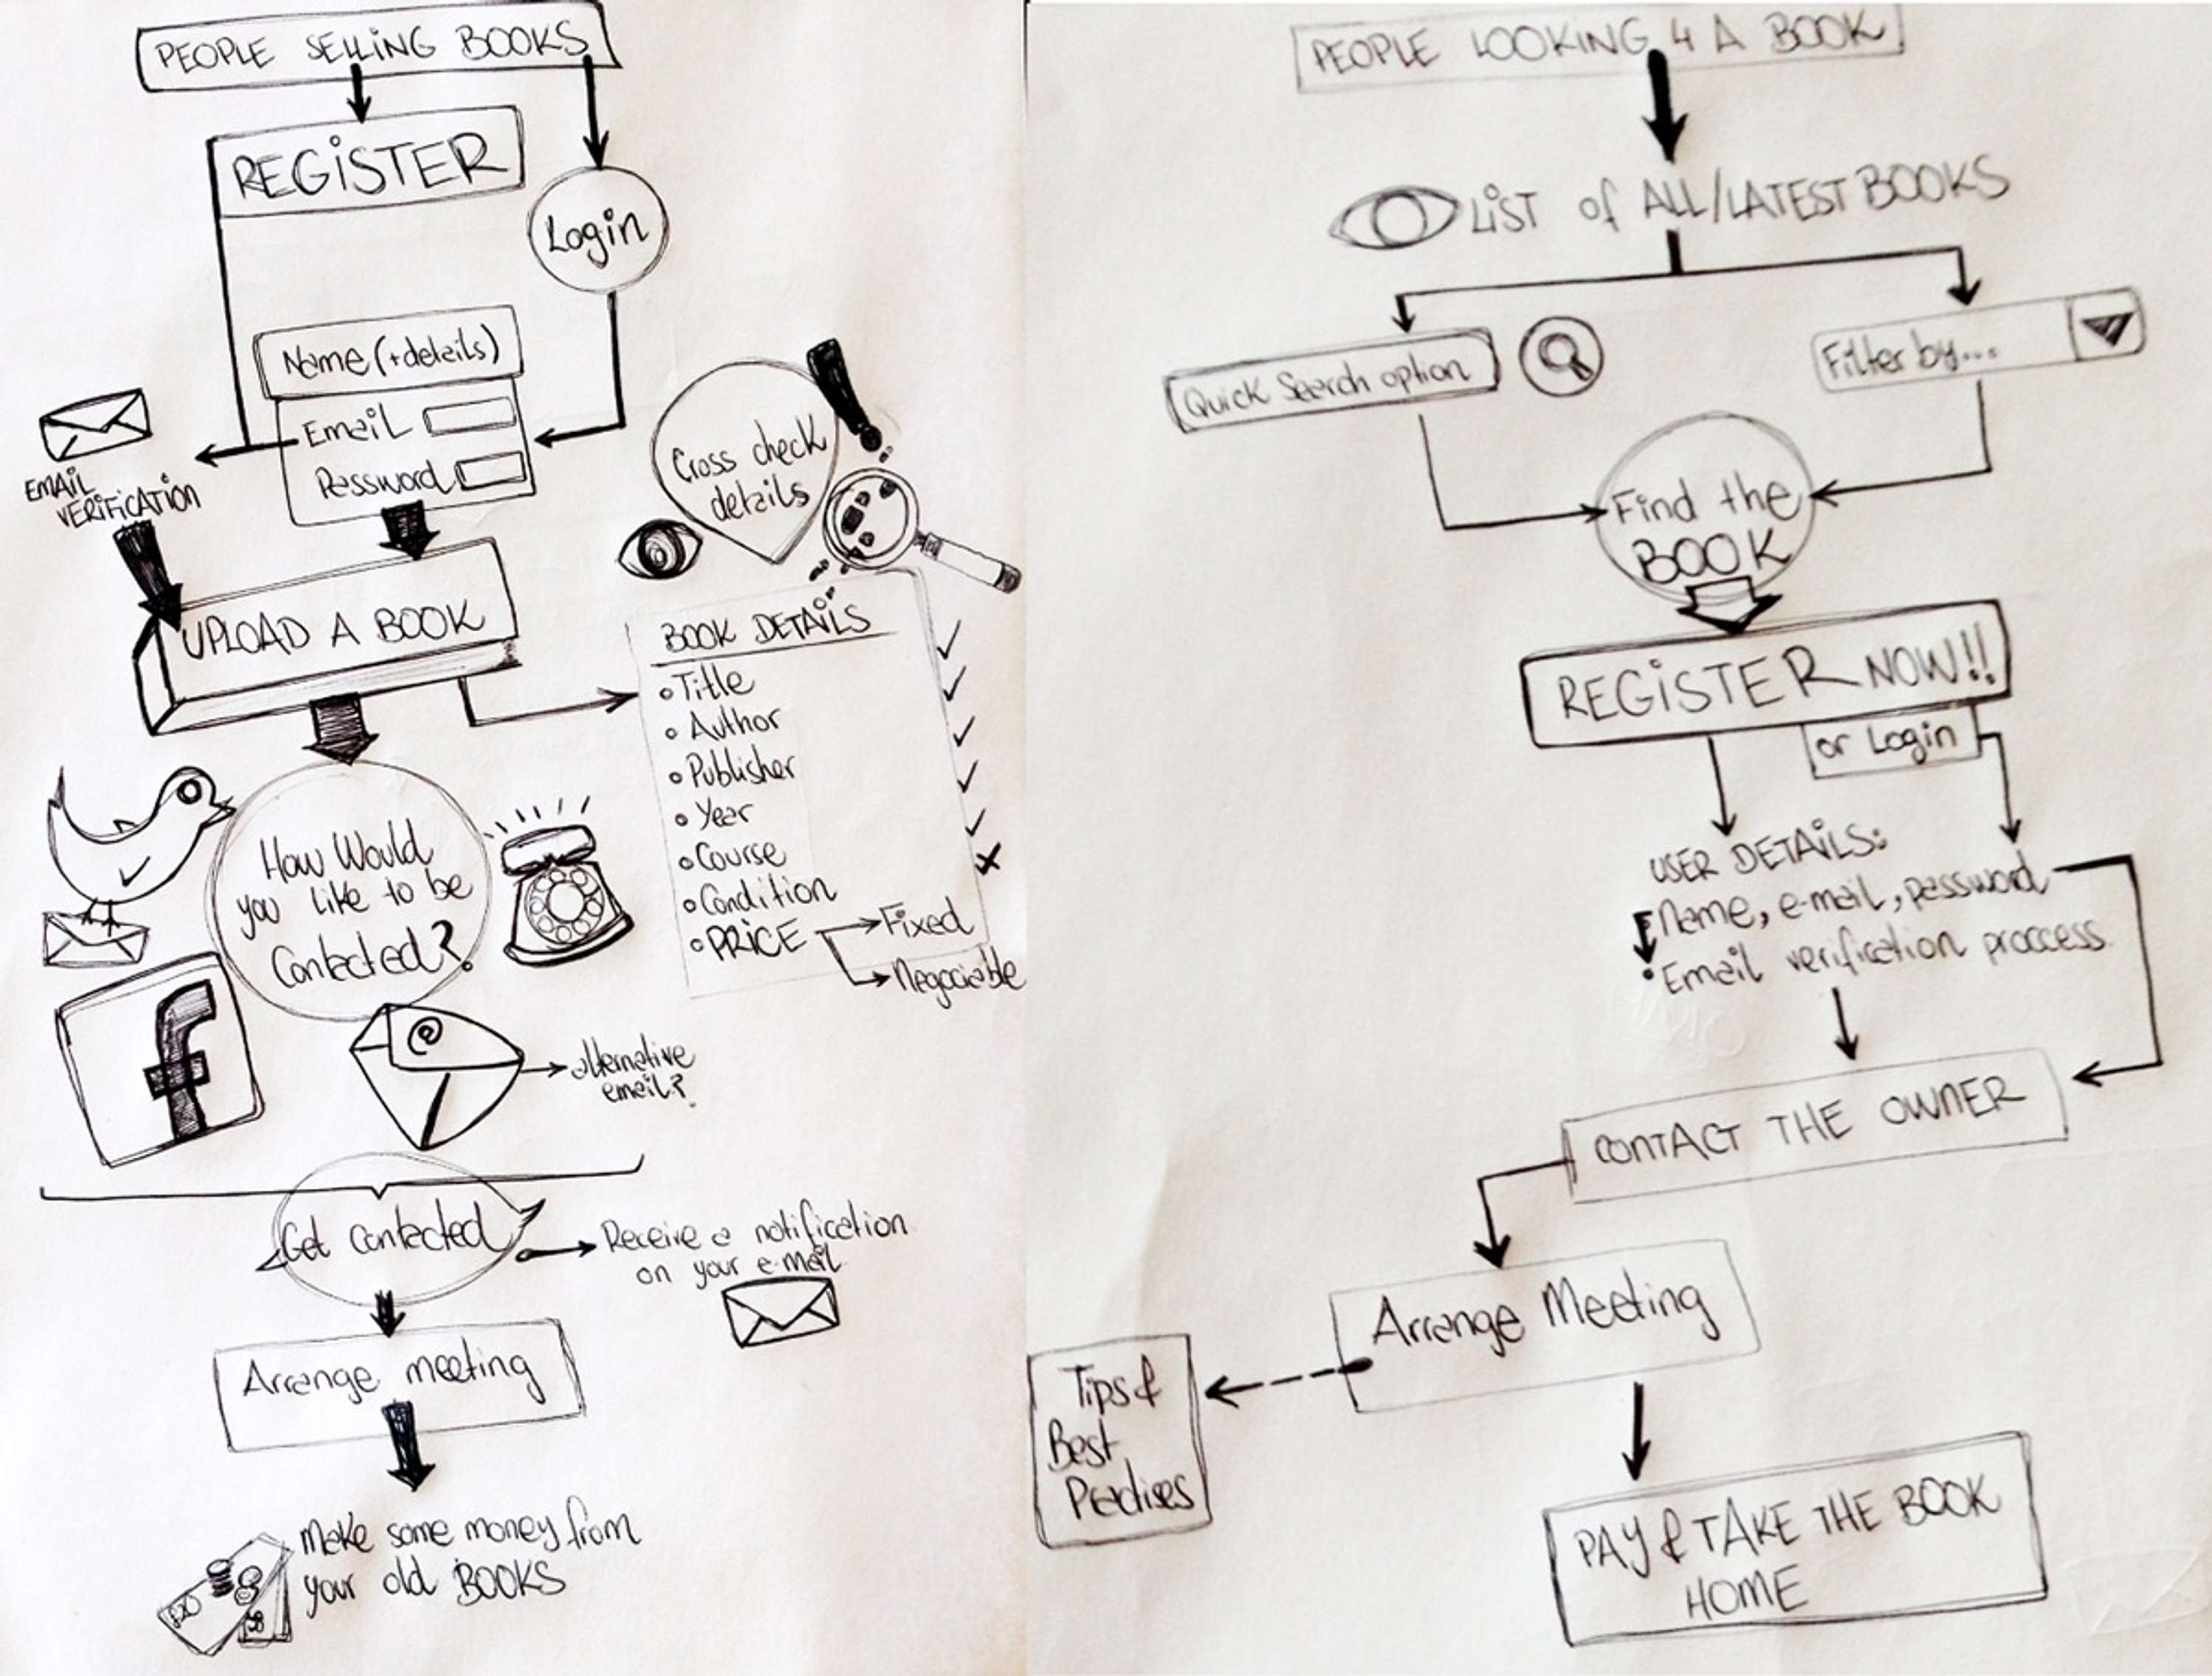 PEOPLE SELLING BOOKS
REGISTER
Login
Name (+details)
Email
Password
EMAIL
VERIFICATION
Cross check
details
UPLOAD A BOOK
BOOK DETAILS
Title
Author
Publisher
Year
Course
Condition
PRICE
Fixed
Negociable
How Would
you like to be
Contacted?
f
@
alternative
email?
Get contacted
Receive a notification
on your e-mail
Arrange meeting
Make some money from
your old BOOKS
PEOPLE LOOKING 4 A BOOK
LIST of ALL/LATEST BOOKS
Quick Search option
Filter by...
Find the
BOOK
REGISTER NOW!!
or Login
USER DETAILS:
Name, e-mail, password
Email verification proccess
CONTACT THE OWNER
Arrange Meeting
Tips &
Best
Practises
PAY & TAKE THE BOOK
HOME